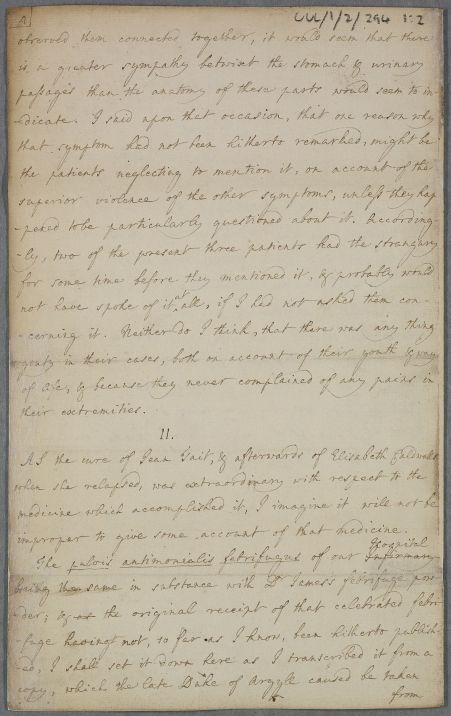 2
UU/1/2/294 1:2
observed them connected together, it would seem that there
is a greater sympathy betwixt the stomach & urinary
passages than the anatomy of these parts would seem to in-
-dicate. I said upon that occasion, that one reason why
that symptom had not been hitherto remarked, might be
the patients neglecting to mention it, on account of the
superior violence of the other symptoms, unless they hap
-pened to be particularly questioned about it. According-
-ly, two of the present three patients had the strangury
for some time before they mentioned it, & probably would
not have spoke of it at all, if I had not asked them con-
-cerning it. Neither do I think, that there was any thing
gouty in their cases, both on account of their youth & way
of life, & because they never complained of any pains in
their extremities.
11.
AS the cure of Jean Tait, & afterwards of Elisabeth
when she relapsed, was extraordinary with respect to the
medicine which accomplished it, I imagine it will not be
improper to give some account of that medicine.
The pulvis antimonialis febrifugus of our Infirmary Hospital
being the same in substance with Dr James's febrifuge pow
-der; & as the original receipt of that celebrated febri-
-fuge having not, so far as I know, been hitherto publish-
-ed, I shall set it down here as I transcribed it from a
copy, which the late Duke of Argyle caused be taken
from